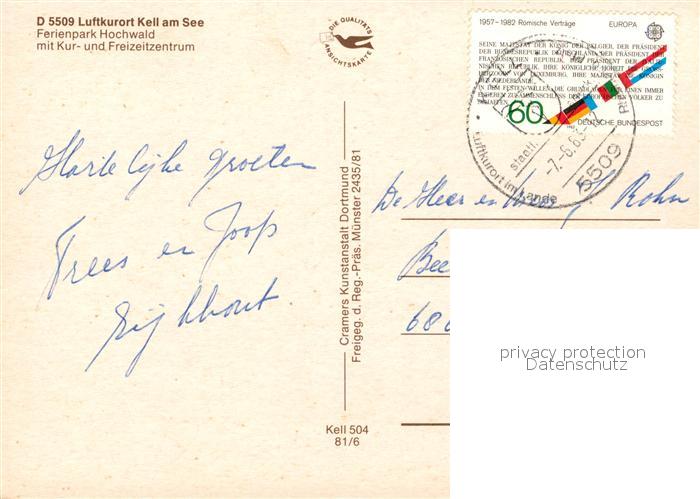 D 5509 Luftkurort Kell am See
Ferienpark Hochwald
mit Kur- und Freizeitzentrum
DIE QUALITÄTS
ANSICHTSKARTE
1957–1982 Römische Verträge EUROPA
SEINE MAJESTÄT DER KÖNIG DER BELGIER, DER PRÄSIDENT
DER BUNDESREPUBLIK DEUTSCHLAND, DER PRÄSIDENT DER
FRANZÖSISCHEN REPUBLIK, DER PRÄSIDENT DER ITALIE-
NISCHEN REPUBLIK, IHRE KÖNIGLICHE HOHEIT DIE GROSS-
HERZOGIN VON LUXEMBURG, IHRE MAJESTÄT DIE KÖNIGIN
DER NIEDERLANDE,
IN DEM FESTEN WILLEN, DIE GRUNDLAGEN FÜR EINEN IMMER
ENGEREN ZUSAMMENSCHLUSS DER EUROPÄISCHEN VÖLKER ZU
SCHAFFEN
60
DEUTSCHE BUNDESPOST
staatl.
Luftkurort im Lande
5509
Hartelijke groeten
Trees en Joop
Cramers Kunstanstalt Dortmund
Freigeg. d. Reg.-Präs. Münster 2435/81
De Heer en Rohn
Bee
68
Kell 504
81/6
privacy protection
Datenschutz